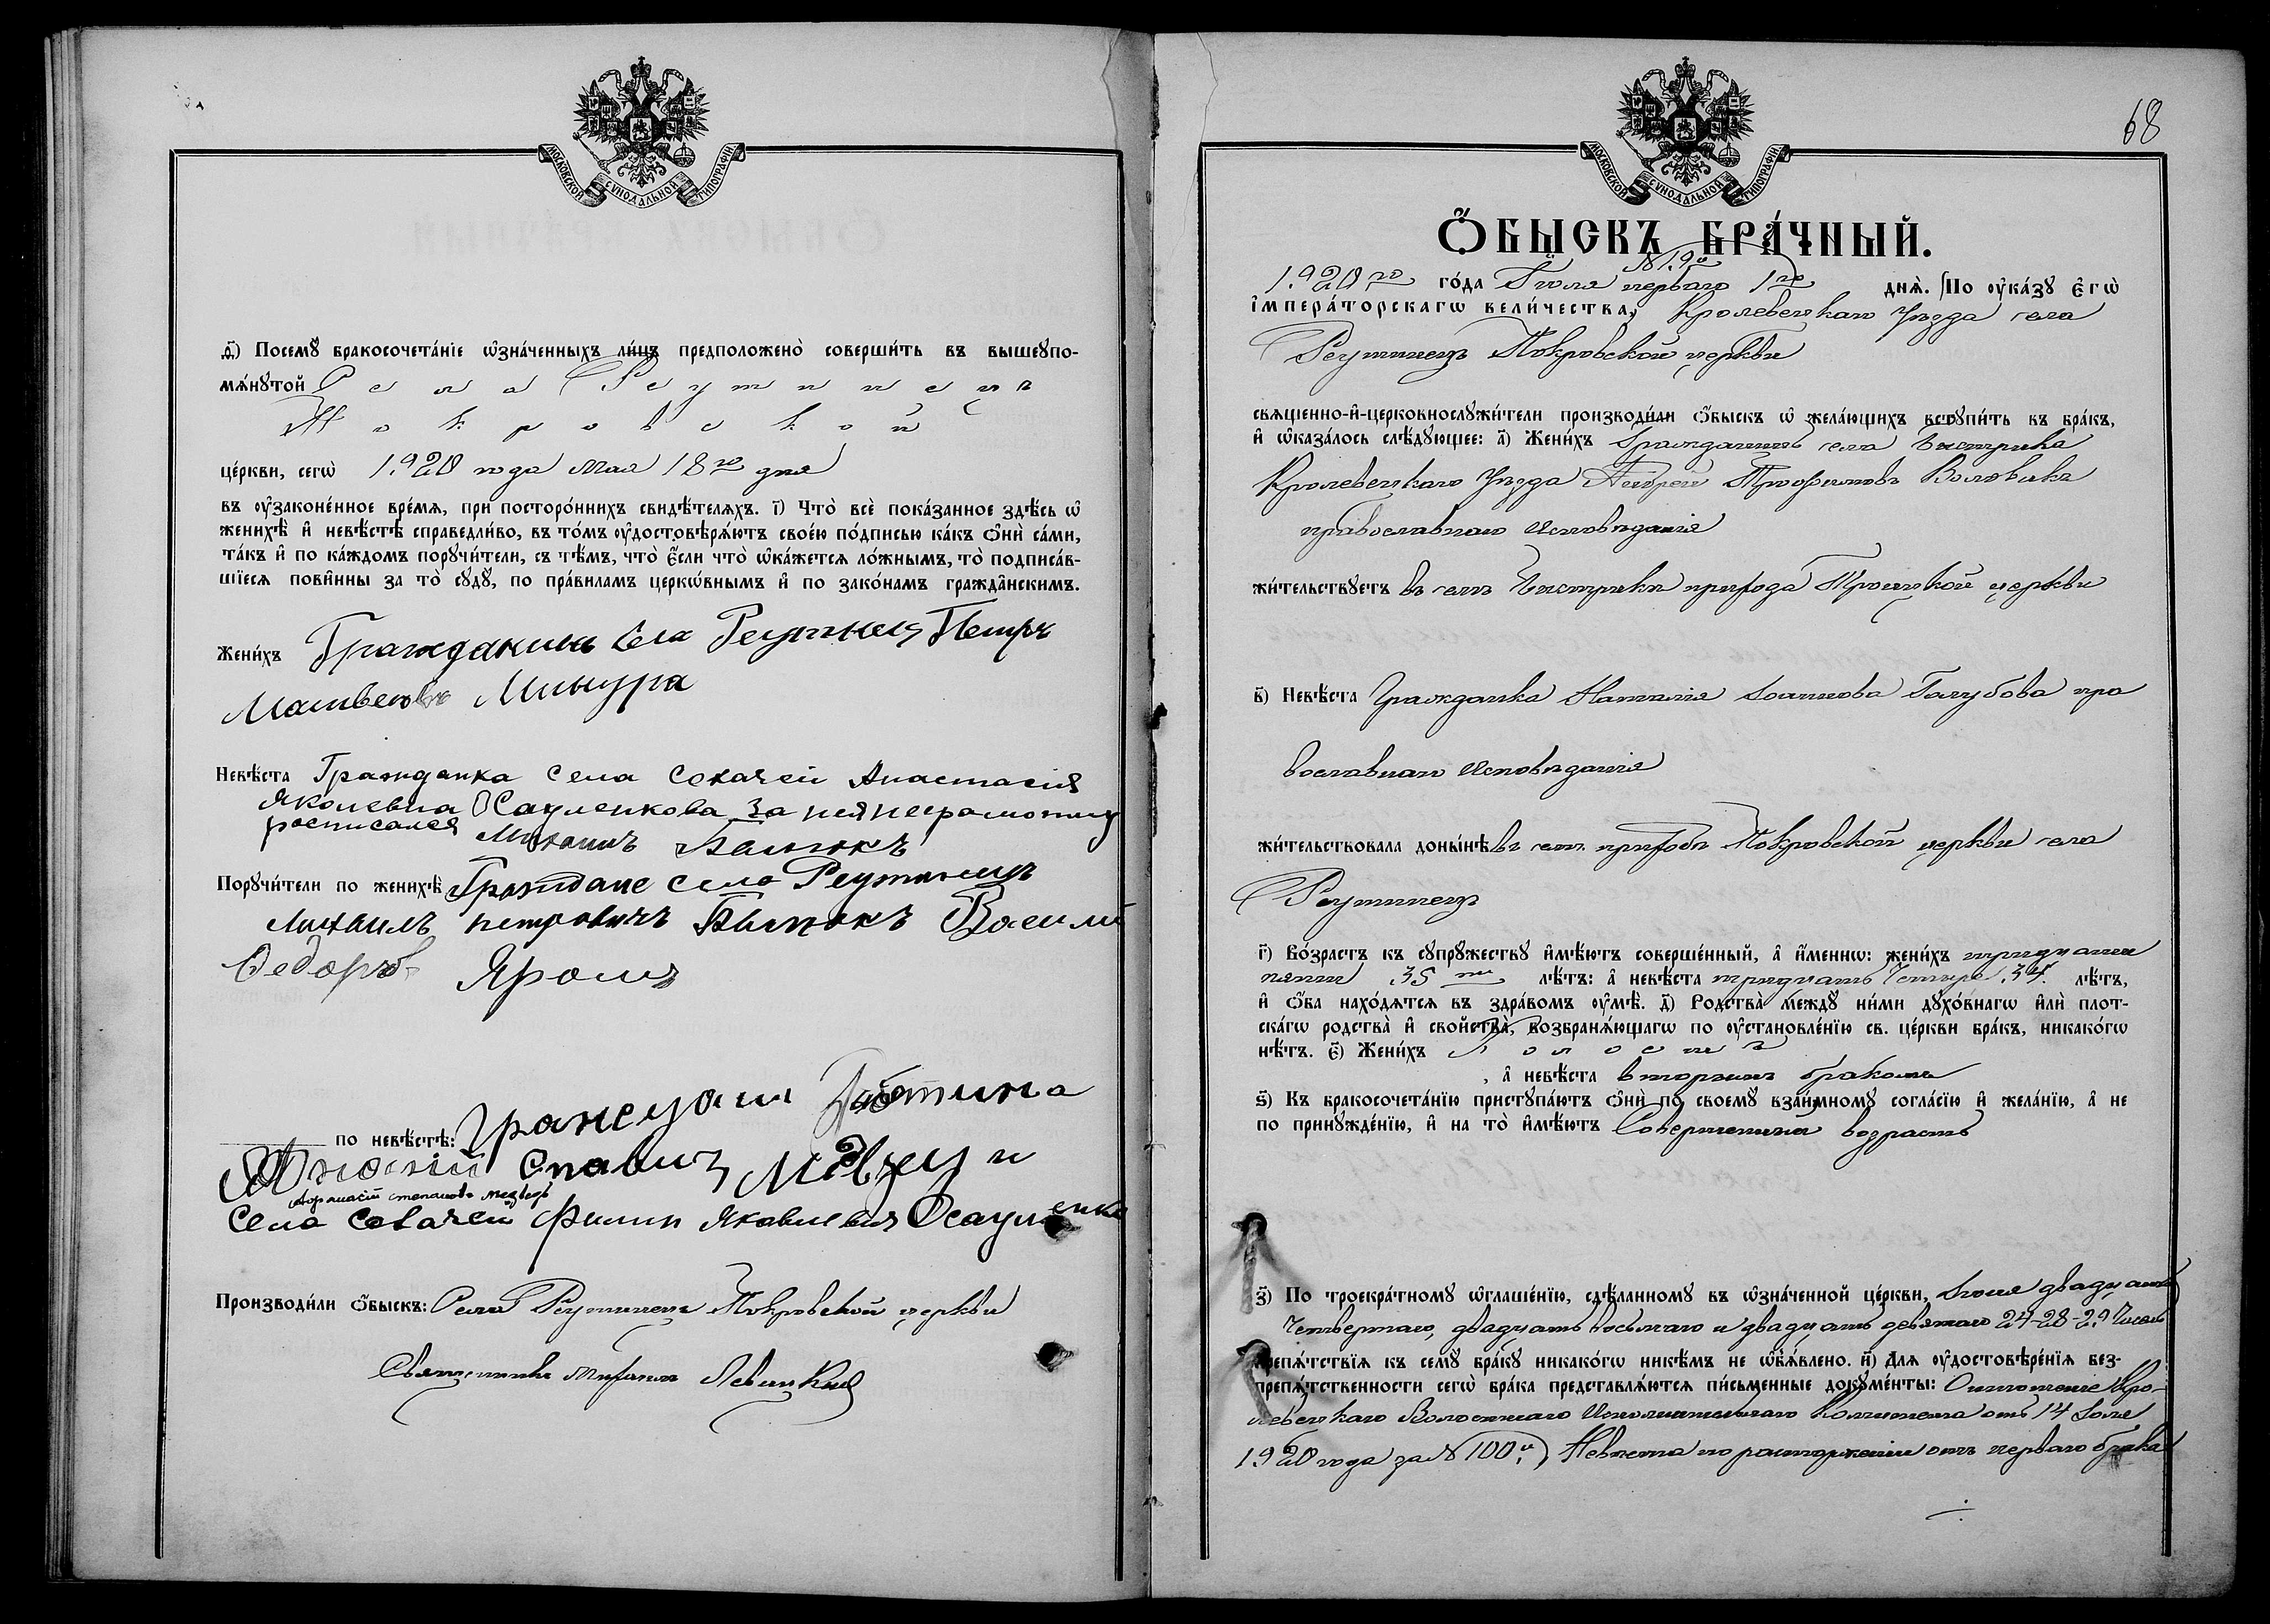 МОСКОВСКОЙ СѴНОДАЛЬНОЙ ТИПОГРАФІИ
ѳ҃) Посемꙋ бракосочета́нїе ѡ҆зна́ченныхъ ли́цъ предположено̀ соверши́ть въ вышеꙋпо-
мѧ́нꙋтой Села Реутинецъ
Покровской
це́ркви, сегѡ̀ 1920 года мая 18го дня
въ ᲂу҆зако́нённое вре́мѧ, при посторо́ннихъ свидѣ́телѧхъ. і҃) Что̀ всѐ пока́занное здѣ́сь ѡ҆
женихѣ̀ и҆ невѣ́стѣ справедли́во, въ то́мъ ᲂу҆достовѣрѧ́ютъ свое́ю по́дписью ка́къ ѻ҆нѝ са́ми,
та́къ и҆ по ка́ждомъ порꙋчи́тели, съ тѣ́мъ, что̀ є҆́сли что̀ ѡ҆ка́жетсѧ ло́жнымъ, то̀ подписа́в-
шїесѧ пови́нны за то̀ сꙋдꙋ̀, по пра́виламъ церкѡ́внымъ и҆ по зако́намъ гражда́нскимъ.
Жени́хъ Гражданинъ Села Реутинец Петръ
Матвеевъ Мишура
Невѣ́ста Гражданка села Собачей Анастасия
Яколевна Осауленкова за нея неграмотну
росписался Михаилъ
Порꙋчи́тели по женихѣ̀ Граждане села Реутинецъ
Михаилъ петровичъ Василий
Федоръ
по невѣ́стѣ: Граждани
Афанасій степановъ медведь
Села Собачей Филип Яковлевич Осауленко
Производи́ли ѻ҆́быскъ: Села Реутинецъ Покровской церкви
Священникъ Михаилъ Левицкий
68
МОСКОВСКОЙ СѴНОДАЛЬНОЙ ТИПОГРАФІИ
Ѻ҆́БЫСКЪ БРА́ЧНЫЙ.
№ 19й
1920го го́да Іюля перваго 1го днѧ̀. По ᲂу҆ка́зꙋ є҆гѡ̀
і҆мпера́торскагѡ вели́чества, Кролевецкаго Уѣзда села
Реутинецъ Покровской церкви
свѧще́нно-и҆-церковнослꙋжи́тели производи́ли ѻ҆́быскъ ѡ҆ жела́ющихъ встꙋпи́ть въ бра́къ,
и҆ ѡ҆каза́лось слѣ́дꙋющее: а҃) Жени́хъ Гражданинъ села Быстрика
Кролевецкаго Уѣзда Андрей Трофимовъ Воловикъ
православнаго Исповѣданія
жи́тельствꙋетъ въ селѣ Быстрикѣ прихода Троицкой церкви
в҃) Невѣ́ста Гражданка Наталія Іоаннова Голубова пра
вославнаго Исповѣданія
жи́тельствовала доны́нѣ въ селѣ приходѣ Покровской церкви села
Реутинецъ
г҃) Во́зрастъ къ сꙋпрꙋ́жествꙋ и҆мѣ́ютъ соверше́нный, а҆ и҆́меннѡ: жени́хъ тридцати
пяти 35ти лѣ́тъ: а҆ невѣ́ста тридцать четыре 34 лѣ́тъ,
и҆ ѻ҆́ба нахо́дѧтсѧ въ здра́вомъ ᲂу҆мѣ̀. д҃) Родства̀ междꙋ̀ ни́ми дꙋхо́внагѡ и҆лѝ плот-
ска́гѡ родства̀ и҆ свойства̀, возбранѧ́ющагѡ по ᲂу҆становле́нїю св. це́ркви бра́къ, никако́гѡ
нѣ́тъ. є҃) Жени́хъ холостъ
, а҆ невѣ́ста вторымъ бракомъ
ѕ҃) Къ бракосочета́нїю пристꙋпа́ютъ ѻ҆нѝ по своемꙋ̀ взаи́мномꙋ согла́сїю и҆ жела́нїю, а҆ не
по принꙋжде́нїю, и҆ на то̀ и҆мѣ́ютъ Совершенный возрастъ
з҃) По троекра́тномꙋ ѡ҆глаше́нїю, сдѣ́ланномꙋ въ ѡ҆зна́ченной це́ркви, Іюня двадцать
Четвертаго, двадцать восьмаго и двадцать девятаго 24-28-29 Чисел
препѧ́тствїѧ къ семꙋ̀ бра́кꙋ никако́гѡ никѣ́мъ не ѡ҆б̾ѧ́влено. и҃) Длѧ ᲂу҆достовѣре́нїѧ без-
препѧ́тственности сегѡ̀ бра́ка представлѧ́ютсѧ пи́сьменные докꙋме́нты: Отношеніе Кро-
левецкаго Волостнаго Исполнительнаго Комитета отъ 14 Іюня
1920 года за № 100й, Невѣста по расторженіи отъ перваго брака